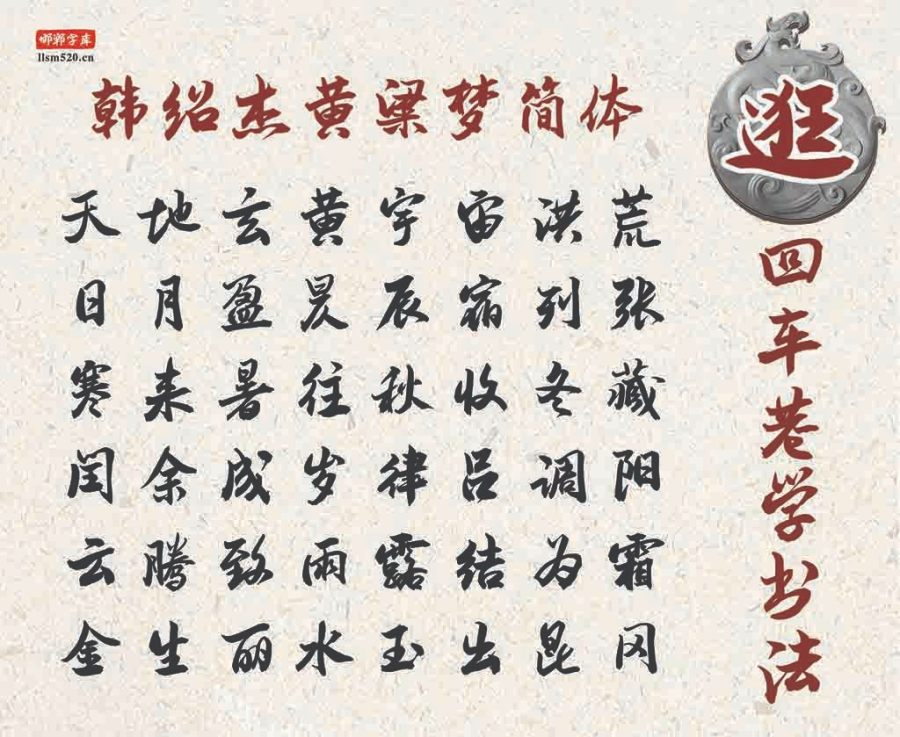 邯郸字库
llsm520.cn
韩绍杰黄粱梦简体
天地玄黄宇宙洪荒
日月盈昃辰宿列张
寒来暑往秋收冬藏
闰余成岁律吕调阳
云腾致雨露结为霜
金生丽水玉出昆冈
逛
四车巷学书法